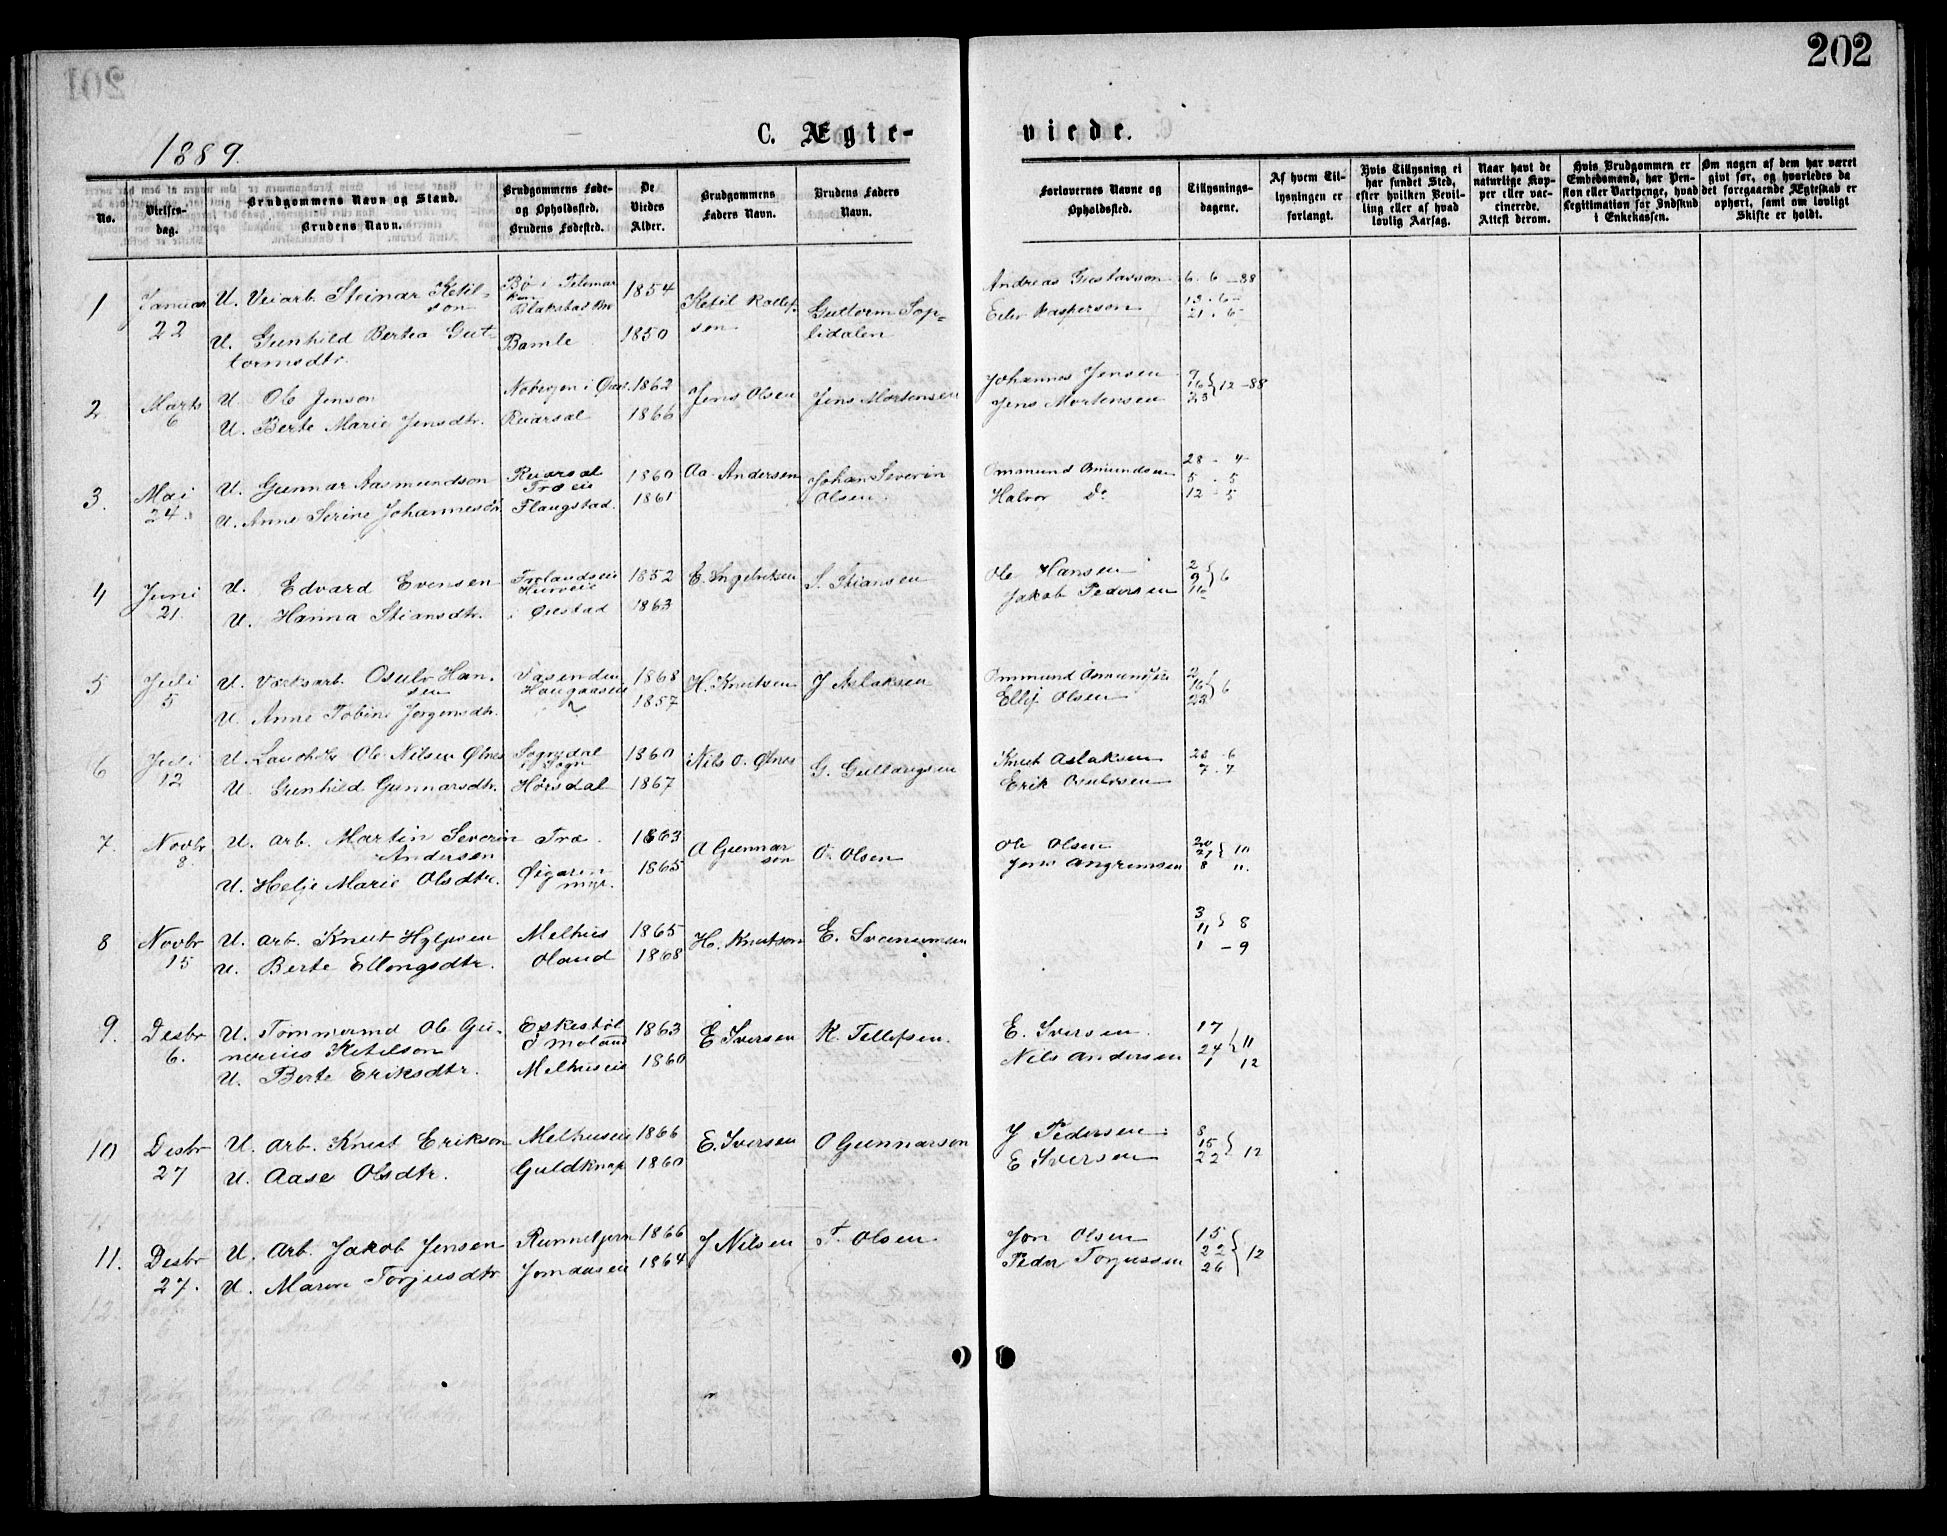 202
1889.
C. Ægte-
viede.
No.
Vielses-
dag.
Brudgommens Navn og Stand.
Brudens Navn.
Brudgommens Føde-
og Opholdssted.
Brudens Fødested.
De
Viedes
Alder.
Brudgommens
Faders Navn.
Brudens Faders
Navn.
Forlovernes Navne og
Opholdssted.
Tillysnings-
dagene.
Af hvem Til-
lysningen er
forlangt.
Hvis Tillysning ei
har fundet Sted,
efter hvilken Bevil-
ling eller af hvad
lovlig Aarsag.
Naar havt de
naturlige Kop-
per eller vac-
cinerede.
Attest derom.
Hvis Brudgommen er
Embedsmand, har Pen-
sion eller Vartpenge, hvad
Legitimation for Indskud
i Enkekassen.
Om nogen af dem har været
gift før, og hvorledes da
det foregaaende Ægteskab er
ophørt, samt om lovligt
Skifte er holdt.
1 Januar 22
U. Veiarb. Steinar Ketil-
son
U. Gunhild Bertea Gut-
tormsdtr.
Bø i Telemar
ken
Blakstad
Bamle
1854
1850
Ketil Rollef-
sen
Guttorm
lidalen
Andreas Gustavson
Eilev Kasperson
6 - 6 -88
13 - 6 -
21 - 6 -
2 Marts 6
U Ole Jenson
U. Berte Marie Jensdtr.
Reiarsal
1862
1866
Jens Olsen
Jens Mortensen
Johannes Jensen
Jens Mortensen
9
16 } 12 -88
23
3. Mai 24.
U. Gunnar Aasmundson
U. Anne Serine Johannesdtr.
Reiarsal
Træ
Flaugstad.
1860
1861
Aa. Andersen
Johan Severin
Olsen.
Omsmund
Halvor Do
28 - 4
5 - 5
12 - 5
4 Juni 21
U. Edvard Evensen
U. Hanna Stiansdtr.
Øiestad
1852
1863
E. Ingebriksen
S. Stiansen
Ole Hansen
Jakob Pedersen
2
9 } 6
16
5 Juli 5
U. Værksarb. Osulv Han-
sen
U. Anne Tobine Jørgensdtr.
Vasenden
Haugaasen
1868
1857
H. Knutsen
J Aslaksen
Ommund
Ellef Olsen
2
16 } 6
23
6 Juli 12
U. Ole Nilsen Øtnes
U. Gunhild Gunnarsdtr.
Sogndal
i Sogn
Hørsdal
1860
1867
Nils O. Øtnes
G. Gullaugsen
Knut Aslaksen
Erik Osulvsen
23 - 6
7 - 7
7. Novbr 8
U. Arb. Martin Severin
Andersen
U. Helje Marie Olsdtr.
Træ.
Øigaren
myr.
1863
1865
A Gunnar
son
O. Olsen
Ole Olsen
Jens Angrimsen
20
27 } 10
8 11.
8 Novbr 15
U. Arb. Knut
U. Berte Ellengsdtr.
Melhus
Oland
1865
1868
H. Knutson
E.
3
11 } 8
1 - 9
9. Desbr 6.
U. Tømmermd Ole Gu-
nerius Ketilson
U. Berte Eriksdtr.
Eskestøl
i Moland
Melhuseie
1863
1860
E Iversen
K. Tellefsen.
E. Iversen.
Nils Andersen
17
24 } 11
1 12
10 Desbr 27
U. Arb. Knut Erikson
U. Aase Olsdtr.
Melhuseie
Guldknap
1866
1860
E. Iversen
O Gunnarson
J Pedersen.
E Iversen
8
15 } 12
22
11. Desbr 27.
U. Arb. Jakob Jensen
U. Maren Torjusdtr
Rennetjern
Jomaaseie
1866
1864
J Nilsen
T. Olsen
Jon Olsen
Peder Torjussen
15
22 } 12
26